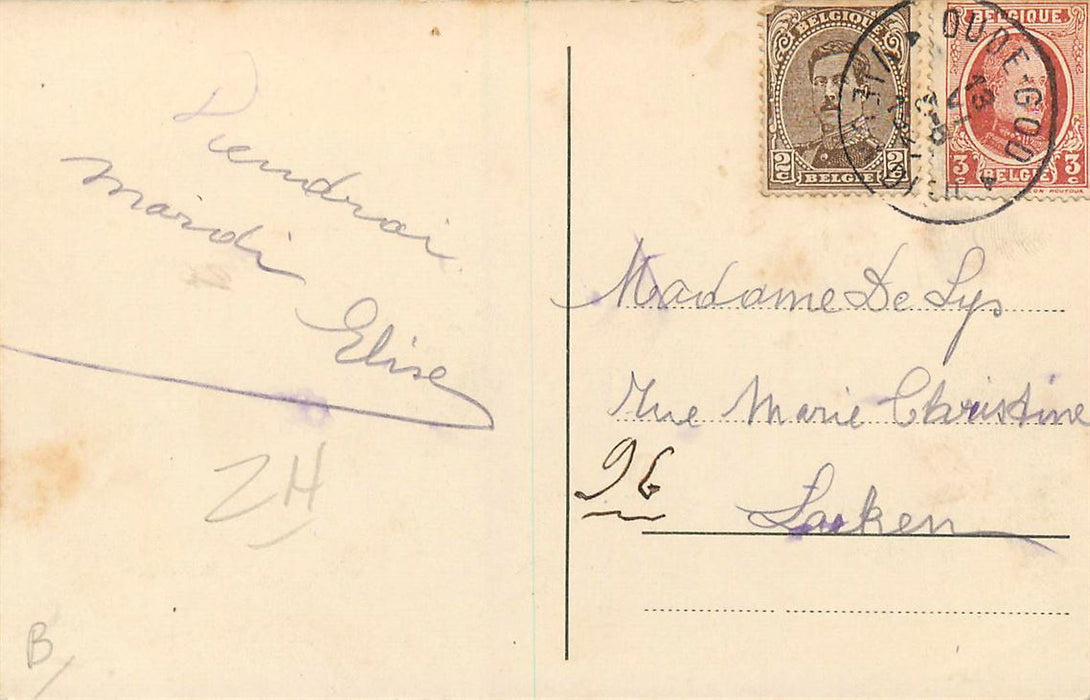 Viendrai
mardi
Elise
ZH
B/
BELGIQUE
2c 2c
BELGIË
BELGIQUE
3c BELGIË 3c
OUDE-GOD
13 VI
Madame De Lys
Rue Marie Christine
96
Laeken